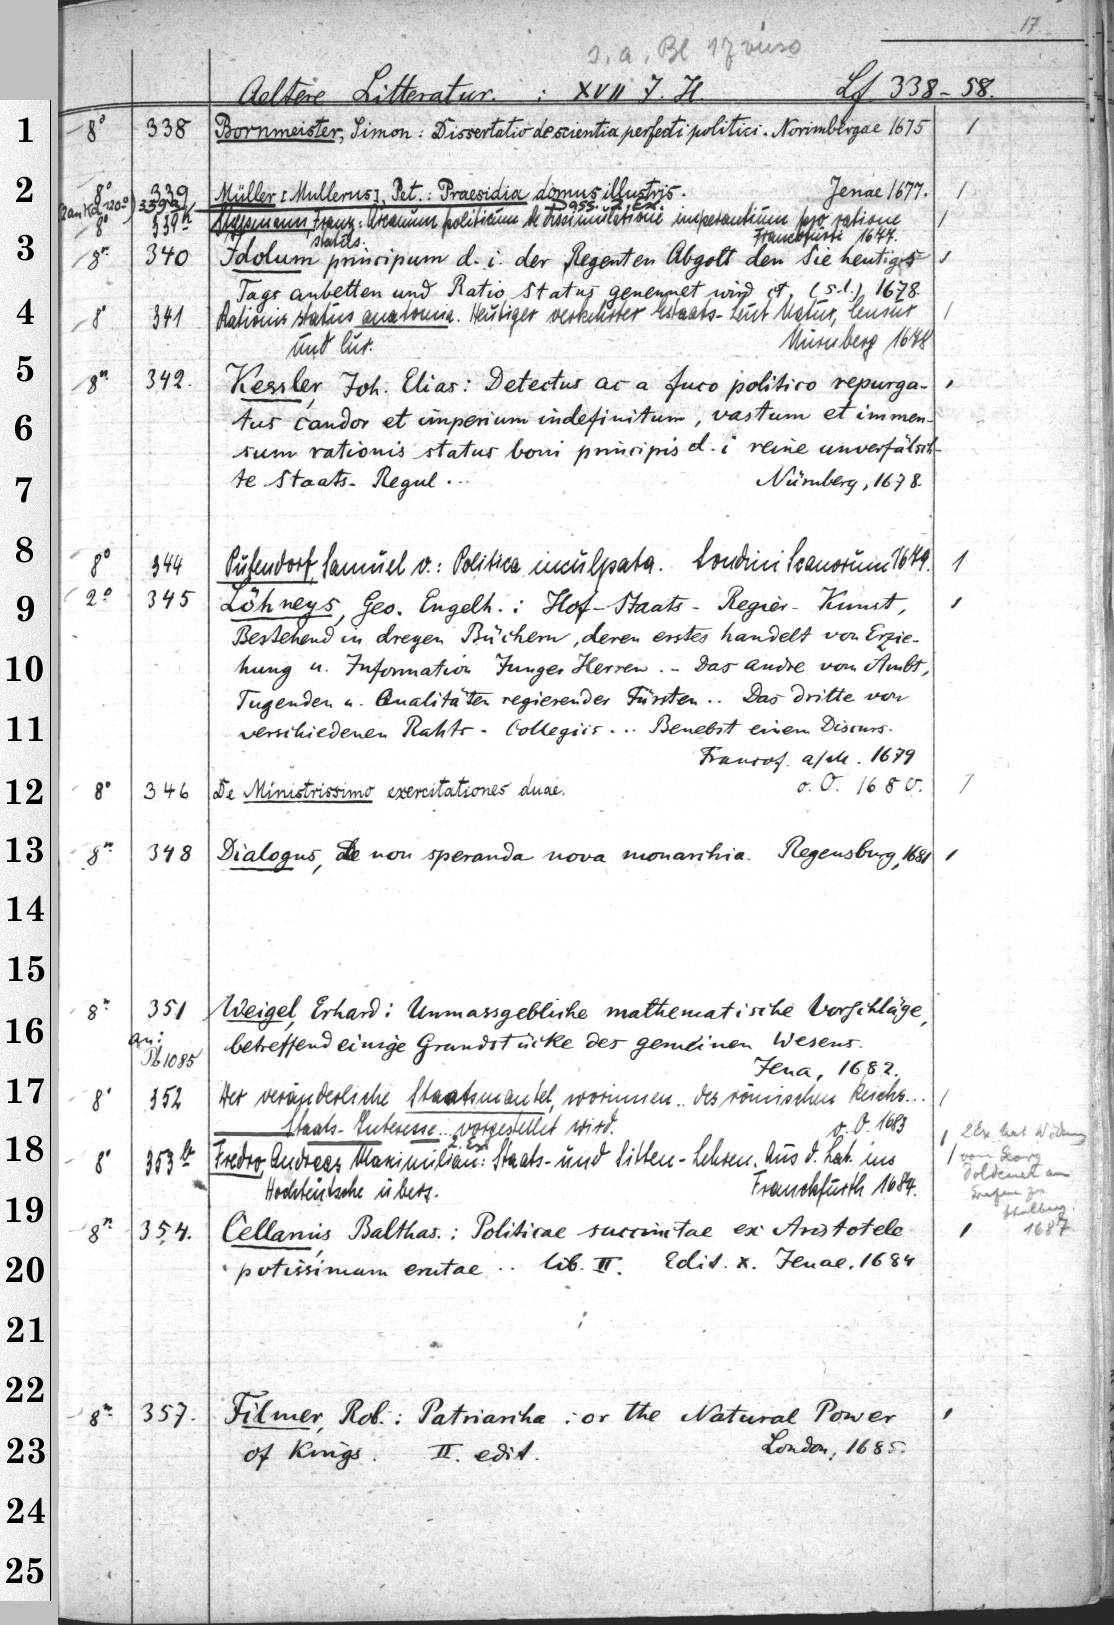 17
s. a. Bl 17 verso
Aeltere Litteratur. : XVII J. H. Lf 338-58.
1 8° 338 Bornmeister, Simon: Dissertatio de scientia perfecti politici. Norimbergae 1675 1
2 8° 339 Müller [Mullerus], Pet.: Praesidia domus illustris. Jenae 1677. 1
339a Dass. 2. Ex.
8° 339b Franz: Arcanum politicum de dissimulatione imperantium pro ratione 1
status. Francofurti 1677.
3 8° 340 Idolum principum d. i. der Regenten Abgott den Sie heutiges 1
Tags anbetten und Ratio Status genennet wird et. (s.l.) 1678.
4 8° 341 Rationis status anatomia. Heutiger verkehrter Estaats-Leut Natur, Censur 1
und Cur. Nürnberg 1678
5 8° 342. Kessler, Joh. Elias: Detectus ac a fuco politico repurga- 1
6 tus candor et imperium indefinitum, vastum et immen-
sum rationis status boni principis d. i reine unverfälsch-
7 te Staats-Regul ... Nürnberg, 1678.
8 8° 344 Pufendorf, Samuel v.: Politica inculpata. Londini Scanorum 1679. 1
9 2° 345 Löhneys, Geo. Engelh.: Hof-Staats-Regier-Kunst, 1
Bestehend in dreyen Büchern, deren erstes handelt von Erzie-
10 hung u. Information Junger Herren .. Das andre vom Ambt,
Tugenden u. Qualitäten regierender Fürsten .. Das dritte von
11 verschiedenen Rahts-Collegiis ... Benebst einem Discurs.
Francof. a/M. 1679
12 8° 346 De Ministrissimo exercitationes duae. o. O. 1680. 1
13 8° 348 Dialogus, de non speranda nova monarchia. Regensburg, 1681 1
14
15
8° 351 Weigel, Erhard: Unmassgebliche mathematische Vorschläge,
16 an: Pb 1085 betreffend einige Grundstücke des gemeinen Wesens.
Jena, 1682.
17 8° 352 Der veränderliche Staatsmantel, worinnen .. des römischen Reichs... 1
Staats-Interesse .. vorgestellet wird. o. O. 1683
2. Ex.
18 8° 353b Fredro, Andreas Maximilian: Staats- und Sitten-Lehren. Aus d. Lat. ins 1
Hochteutsche übers. Franckfurth 1684.
2 Ex. hat Widmung
von Georg
1687
19 8° 354. Cellarius, Balthas.: Politicae succinctae ex Aristotele 1
20 potissimum erutae .. lib. II. Edit. X. Jenae, 1684
21
22
8° 357. Filmer, Rob.: Patriarcha: or the Natural Power 1
23 of Kings. II. edit. London, 1685.
24
25